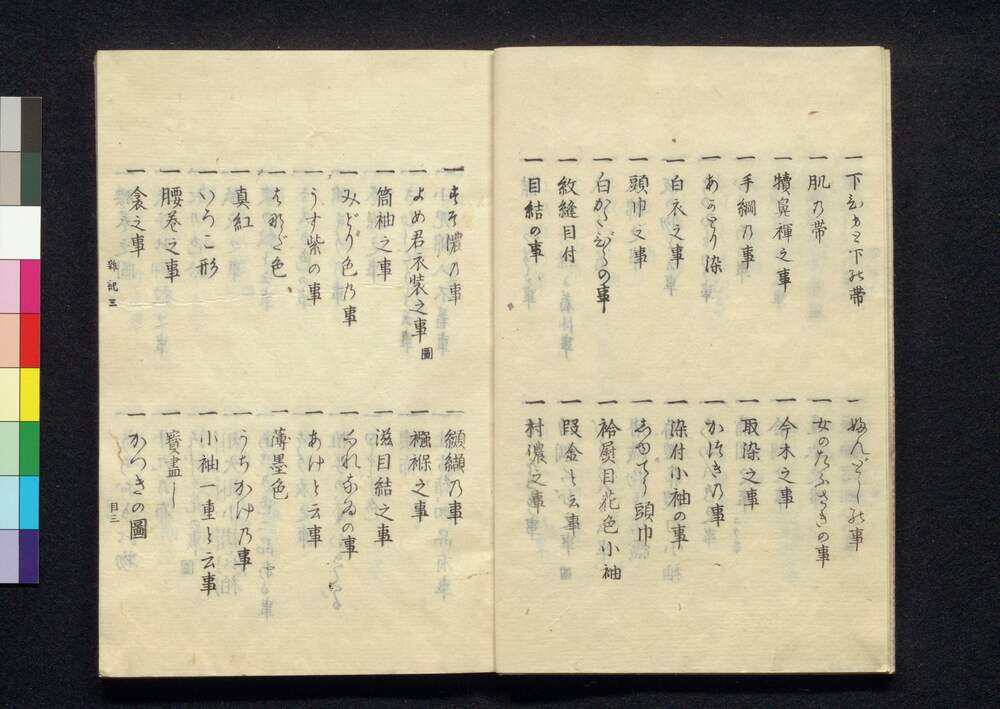 一下ひもと下の帯
一ふんどしの事
一肌乃帯
一女のたふさきの事
一犢鼻褌之事
一今木之事
一手綱乃事
一取染之事
一あかとり染
一かつきの事
一白衣之事
一染付小袖の事
一頭巾之事
一頭巾
一白かたびらの事
一袷熨目花色小袖
一紋縫目付
一段金と云事
一目結の事
一村濃之事
一すそ濃乃事
一纐纈乃事
一よめ君衣装之事 圖
一襁褓之事
一筒袖之事
一滋目結之事
一みどり色乃事
一くれなゐの事
一うす紫の事
一あけと云事
一はなだ色
一薄墨色
一真紅
一うちかけ乃事
一いろこ形
一小袖一重と云事
一腰巻之事
一寳盡し
一衾之事
一かつきの圖
雜記三
目三